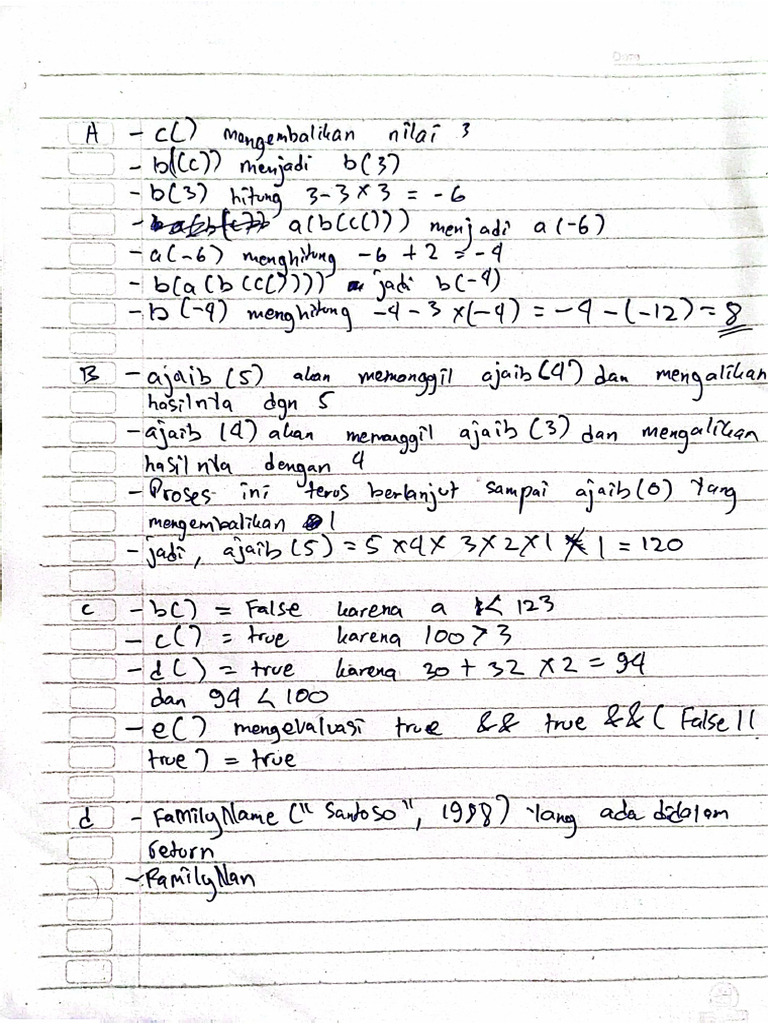 A - c() mengembalikan nilai 3
- b((c)) menjadi b(3)
- b(3) hitung 3-3×3 = -6
- a(b(c())) menjadi a(-6)
- a(-6) menghitung -6 + 2 = -4
- b(a(b(c()))) jadi b(-4)
- b(-4) menghitung -4 - 3 ×(-4) = -4 - (-12) = 8
B - ajaib (5) akan memanggil ajaib(4) dan mengalikan
hasilnya dgn 5
- ajaib (4) akan memanggil ajaib (3) dan mengalikan
hasilnya dengan 4
- Proses ini terus berlanjut sampai ajaib(0) yang
mengembalikan 1
- jadi, ajaib(5) = 5 ×4× 3×2×1 × 1 = 120
c - b() = False karena a < 123
- c() = true karena 100 > 3
- d() = true karena 30 + 32 ×2 = 94
dan 94 < 100
- e() mengevaluasi true && true && ( False ||
true ) = true
d - FamilyName ("Santoso", 1988) yang ada didalam
return
- FamilyNan